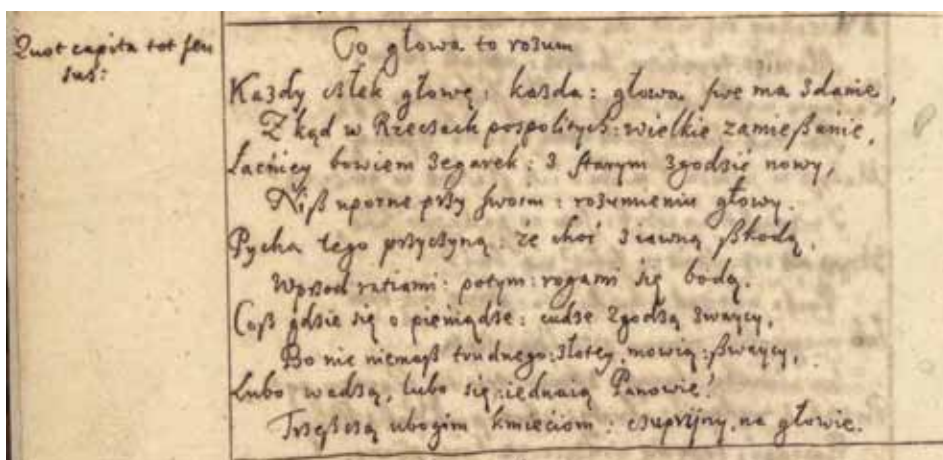 Quot capita tot sen
sus:
Co głowa to rozum
Każdy człek głowę; każda: głowa swe ma zdanie,
Z kąd w Rzeczach pospolitych: wielkie zamießanie,
Łacniey bowiem zegarek: z starym zgodzić nowy,
Niß uporne przy swoim: rozumieniu głowy.
Pycha tego przyczyną: że choć z iawną ßkodą,
Wprzod ratiami: potym: rogami się bodą.
Coß gdzie się o pieniądze: cudze zgodzą
Bo nic niemaß trudnego: złotey, mowią:
Lubo wadzą, lubo się: iednaią Panowie!
Trzeszczą ubogim kmieciom: czupryny, na głowie.